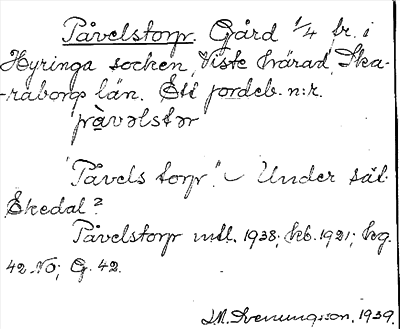 Påvelstorp. Gård 1/4 fr. i
Hyringa socken, Viste härad, Ska-
-raborgs län. Ett jordeb. n:r.
pàvəlstər
"Påvels torp". – Under sät.
Skedal?
Påvelstorp mtl. 1938; kb. 1921; hg.
42 No; G. 42.
J.M. Svenungsson, 1939.